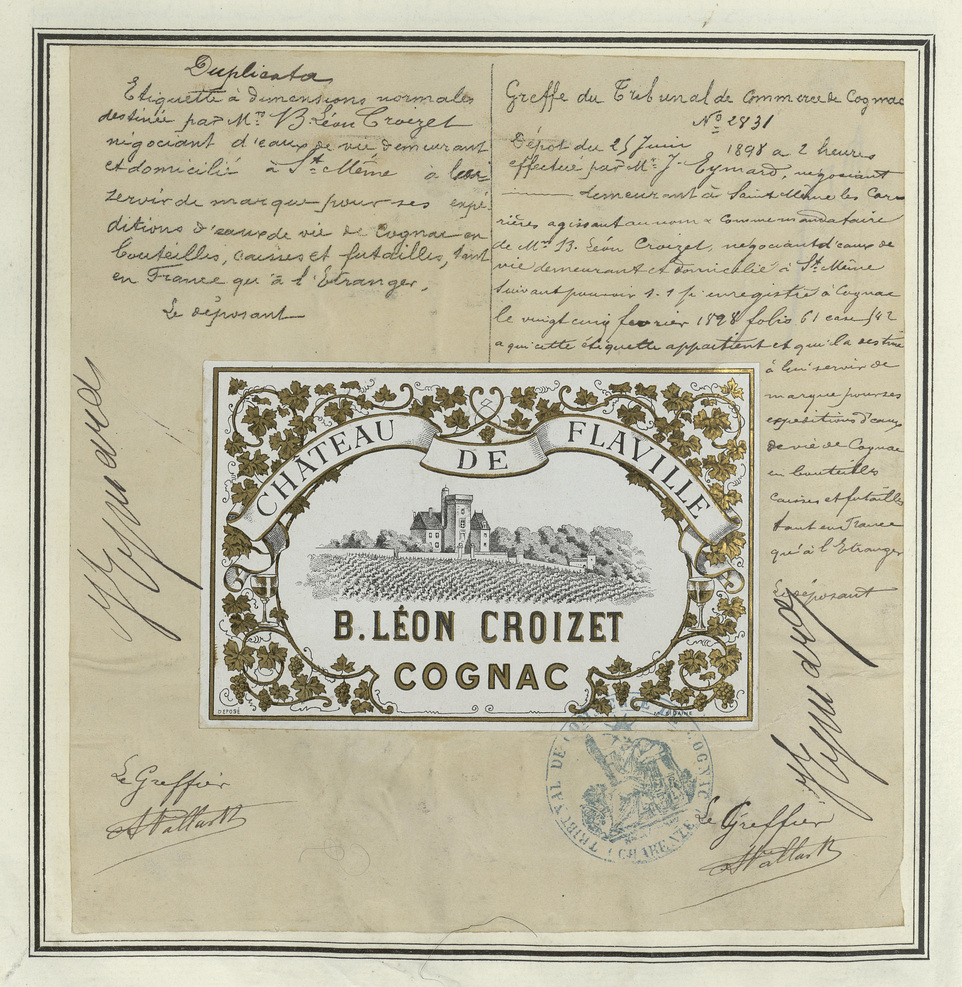 Duplicata
Etiquette à dimensions normales
destinée par Mr B. Léon Croizet
négociant d'eaux de vie demeurant
et domicilié à St Même à lui
servir de marque pour ses expé-
ditions d'eaux de vie de Cognac en
bouteilles, caisses et futailles, tant
en France qu'à l'Etranger.
Le déposant
J Eymard
Greffe du Tribunal de Commerce de Cognac
No 2831
Dépôt du 25 Juin 1898 a 2 heures
effectué par Mr J. Eymard, négociant
demeurant à Saint Même les Car-
rières agissant au nom & comme mandataire
de Mr B. Léon Croizet, négociant d'eaux de
vie demeurant et domicilié à St Même
suivant pouvoir s.s.p. enregistré à Cognac
le vingt cinq fevrier 1898 folio 61 case
a qui cette étiquette appartient et qui la destine
à lui servir de
marque pour ses
expeditions d'eaux
de vie de Cognac
en bouteilles
caisses et futailles
tant en France
qu'à l'Etranger
Le déposant
J Eymard
CHATEAU DE FLAVILLE
B. LÉON CROIZET
COGNAC
DÉPOSÉ
TRIBUNAL DE COMMERCE DE COGNAC
(CHARENTE)
Le Greffier
Le Greffier